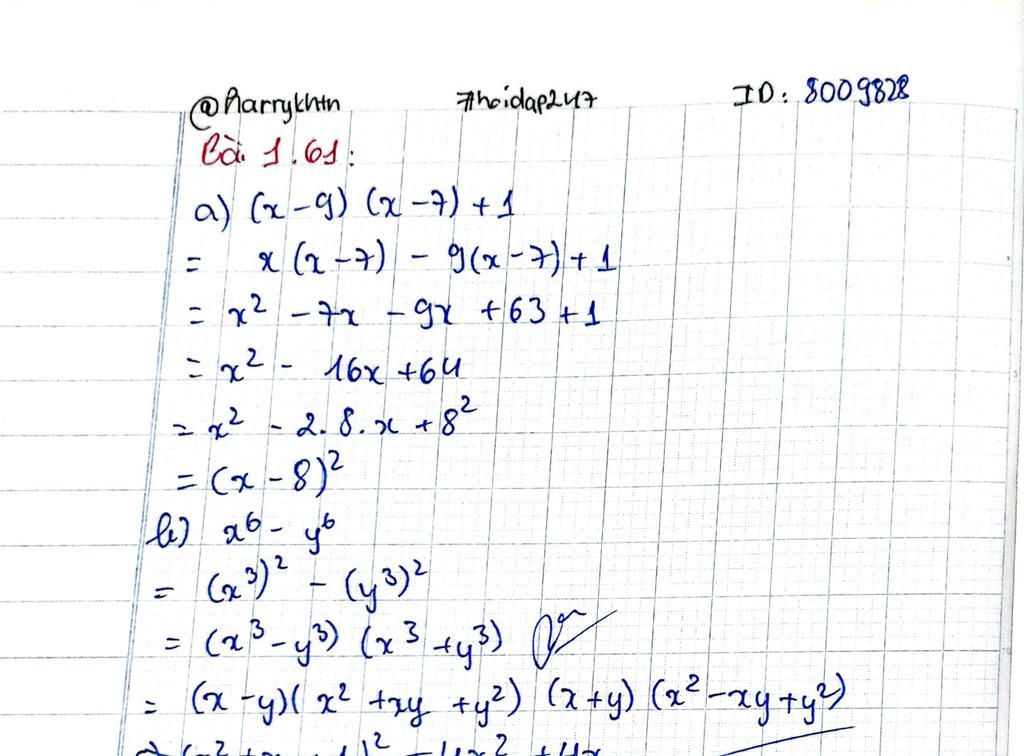 @Harrykhtn #hoidap247 ID: 8009828
Bài 1.61:
a) (x-9) (x-7) + 1
= x (x-7) - 9(x-7) + 1
= x² - 7x - 9x + 63 + 1
= x² - 16x + 64
= x² - 2.8.x + 8²
= (x - 8)²
b) x⁶ - y⁶
= (x³)² - (y³)²
= (x³ - y³) (x³ + y³)
= (x - y)( x² + xy + y²) (x + y) (x² - xy + y²)